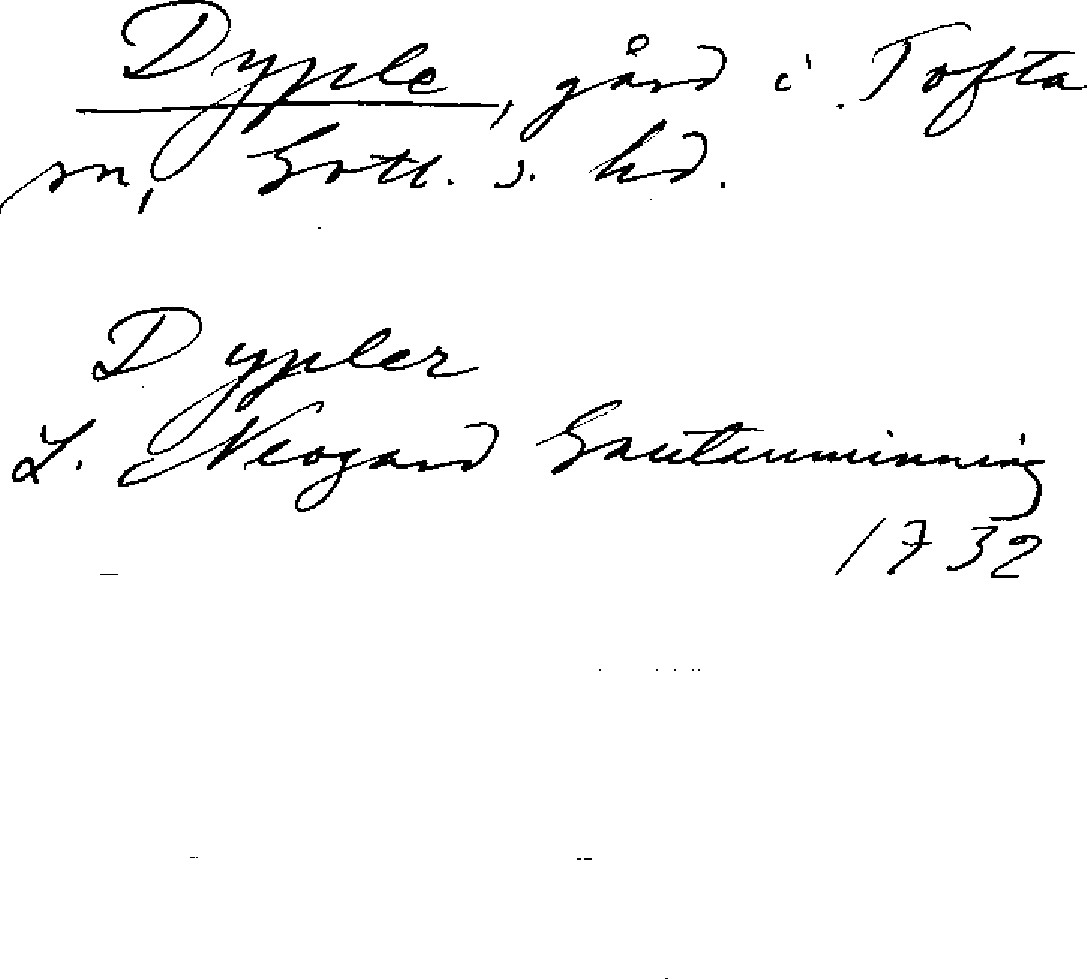 Dyple, gård i Tofta
sn, Gotl. s. hd.
Dypler
L. Neogard Gautauminning
1732